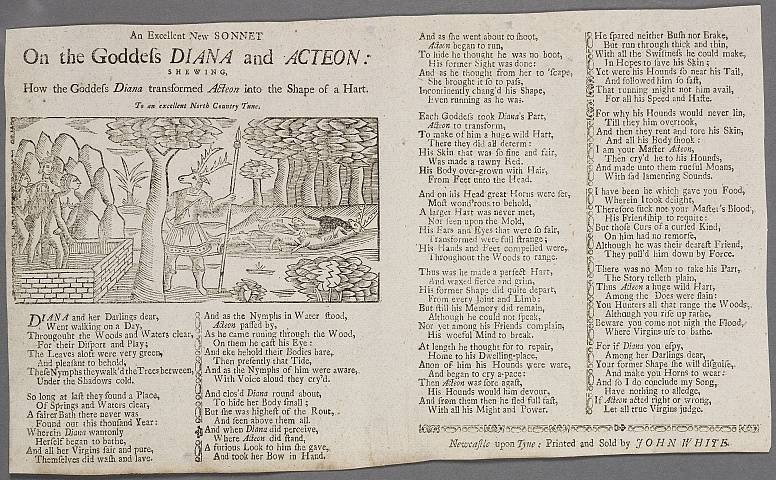 An Excellent New SONNET
On the Goddeſs DIANA and ACTEON:
SHEWING,
How the Goddeſs Diana transformed Acteon into the Shape of a Hart.
To an excellent North Country Tune.
DIANA and her Darlings dear,
Went walking on a Day,
Throughout the Woods and Waters clear,
For their Diſport and Play;
The Leaves aloft were very green,
And pleaſant to behold,
Theſe Nymphs they walk'd the Trees between,
Under the Shadows cold.
So long at laſt they found a Place,
Of Springs and Waters clear,
A fairer Bath there never was
Found out this thouſand Year:
Wherein Diana wantonly
Herſelf began to bathe,
And all her Virgins fair and pure,
Themſelves did waſh and lave.
And as the Nymphs in Water ſtood,
Acteon paſſed by,
As he came runing through the Wood,
On them he caſt his Eye:
And eke beheld their Bodies bare,
Then preſently that Tide,
And as the Nymphs of him were aware,
With Voice aloud they cry'd.
And clos'd Diana round about,
To hide her Body ſmall;
But ſhe was higheſt of the Rout,
And ſeen above them all.
And when Diana did perceive,
Where Acteon did ſtand,
A furious Look to him ſhe gave,
And took her Bow in Hand.
And as ſhe went about to ſhoot,
Acteon began to run,
To hide he thought he was no boot,
His former Sight was done:
And as he thought from her to 'ſcape,
She brought it ſo to paſs,
Incontinently chang'd his Shape,
Even running as he was.
Each Goddeſs took Diana's Part,
Acteon to transform,
To make of him a huge wild Hart,
There they did all determ:
His Skin that was ſo fine and fair,
Was made a tawny Red,
His Body over-grown with Hair,
From Feet unto the Head.
And on his Head great Horns were ſet,
Moſt wond'rous to behold,
A larger Hart was never met,
Nor ſeen upon the Mold,
His Ears and Eyes that were ſo fair,
Transformed were full ſtrange;
His Hands and Feet compelled were,
Throughout the Woods to range.
Thus was he made a perfect Hart,
And waxed fierce and grim,
His former Shape did quite depart,
From every Joint and Limb:
But ſtill his Memory did remain,
Although he could not ſpeak,
Nor yet among his Friends complain,
His woeful Mind to break.
At length he thought for to repair,
Home to his Dwelling-place,
Anon of him his Hounds were ware,
And began to cry a-pace:
Then Acteon was ſore agaſt,
His Hounds would him devour,
And from them then he fled full faſt,
With all his Might and Power.
He ſpared neither Buſh nor Brake,
But run through thick and thin,
With all the Swiftneſs he could make,
In Hopes to ſave his Skin;
Yet were his Hounds ſo near his Tail,
And followed him ſo faſt,
That running might not him avail,
For all his Speed and Haſte.
For why his Hounds would never lin,
Till they him overtook,
And then they rent and tore his Skin,
And all his Body ſhook:
I am your Maſter Acteon,
Then cry'd he to his Hounds,
And made unto them rueful Moans,
With ſad lamenting Sounds.
I have been he which gave you Food,
Wherein I took delight,
Therefore ſuck not your Maſter's Blood,
His Friendſhip to require:
But thoſe Curs of a curſed Kind,
On him had no remorſe,
Although he was their deareſt Friend,
They pull'd him down by Force.
There was no Man to take his Part,
The Story telleth plain,
Thus Acteon a huge wild Hart,
Among the Does were ſlain:
You Hunters all that range the Woods,
Although you riſe up rathe,
Beware you come not nigh the Flood,
Where Virgins uſe to bathe.
For if Diana you eſpy,
Among her Darlings dear,
Your former Shape ſhe will diſguiſe,
And make you Horns to wear:
And ſo I do conclude my Song,
Have nothing to alledge,
If Acteon acted right or wrong,
Let all true Virgins judge.
Newcaſtle upon Tyne: Printed and Sold by JOHN WHITE.